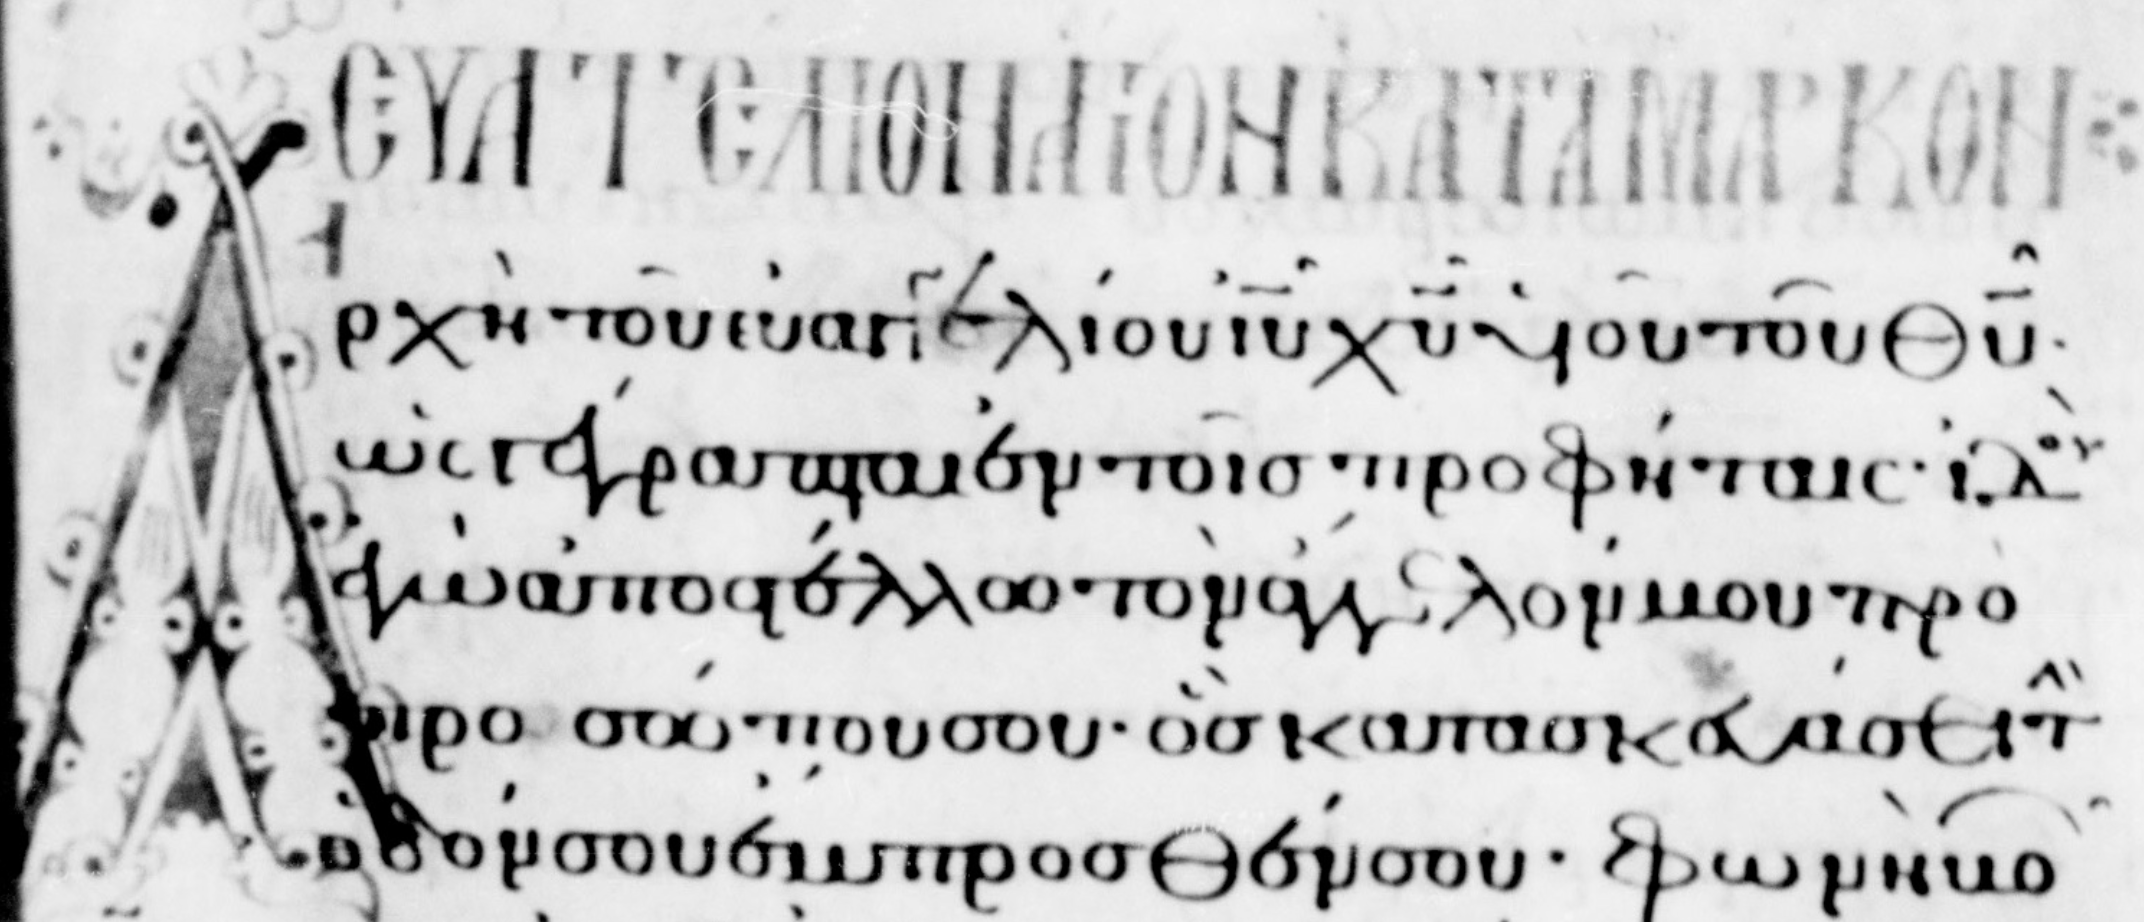 ΕΥΑΓΓΕΛΙΟΝ ΑΓΙΟΝ ΚΑΤΑ ΜΑΡΚΟΝ
Α
ρχὴ τοῦ εὐαγγελίου ἰῦ χῦ ὑιοῦ τοῦ θῦ·
ὡς γέγραπται ἐν τοῖς προφήταις· ἰδοὺ
ἐγὼ ἀποστέλλω τὸν ἄγγελόν μου πρὸ
προσώπου σου· ὃς κατασκευάσει τ
ὁδόν σου ἔμπροσθέν σου· φωνὴ βο